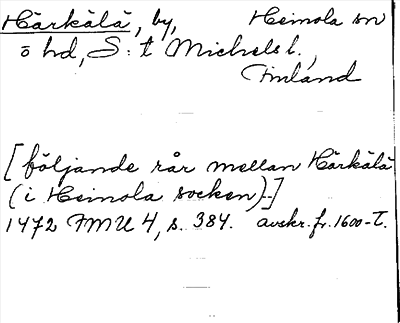 Härkälä, by, Heinola sn
ö hd, S:t Michels l.,
Finland
[följande rår mellan Härkälä
(i Heinola socken)..]
1472 FMU 4, s. 384. avskr. fr. 1600-t.